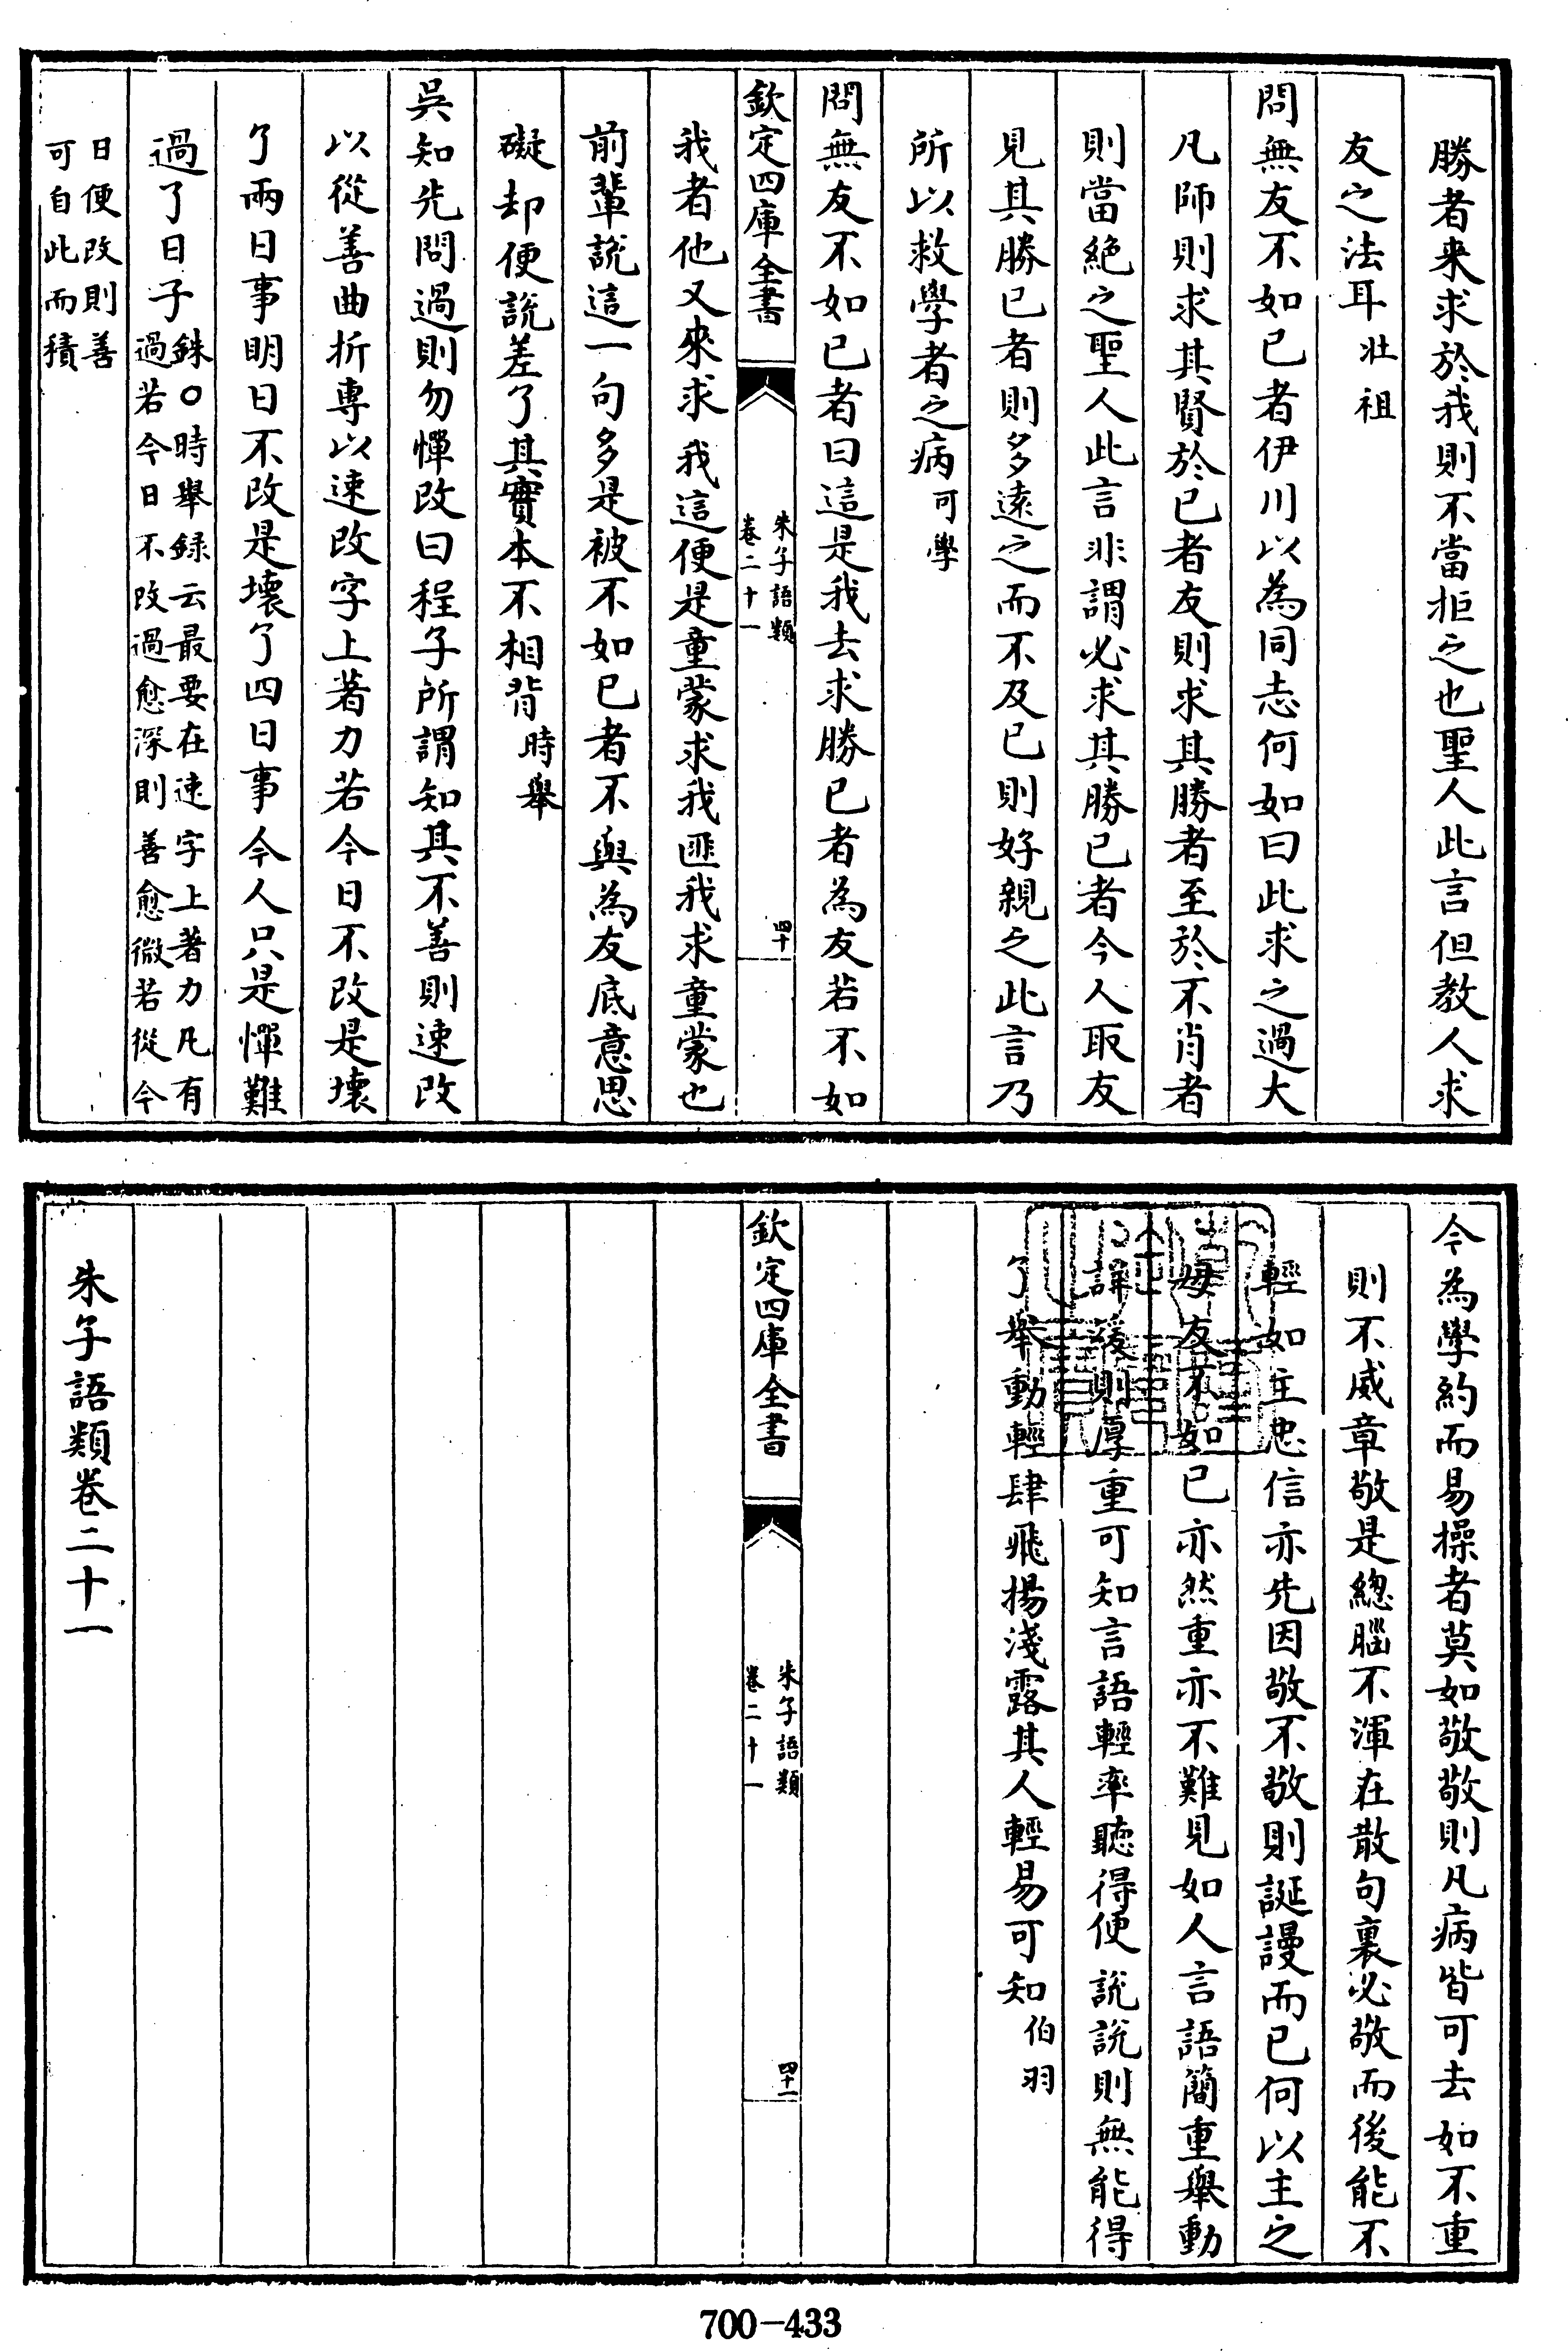 勝者来求於我則不當拒之也聖人此言但教人求
友之法耳壯祖
問無友不如已者伊川以為同志何如曰此求之過大
凡師則求其賢於已者友則求其勝者至於不肖者
則當絶之聖人此言非謂必求其勝已者今人取友
見其勝已者則多逺之而不及已則好親之此言乃
所以救學者之病可學
問無友不如已者曰這是我去求勝已者為友若不如
欽定四庫全書
朱子語類
卷二十一
四十
我者他又來求我這便是童蒙求我匪我求童蒙也
前輩説這一句多是被不如已者不與為友底意思
礙却便説差了其實本不相背時舉
吳知先問過則勿憚改曰程子所謂知其不善則速改
以從善曲折專以速改字上著力若今日不改是壞
了兩日事明日不改是壞了四日事今人只是憚難
過了日子
銖○時舉録云最要在速字上著力凡有
過若今日不改過愈深則善愈微若從今
日便改則善
可自此而積
今為學約而易操者莫如敬敬則凡病皆可去如不重
則不威章敬是總腦不渾在散句裏必敬而後能不
輕如主忠信亦先因敬不敬則誕謾而已何以主之
毋友不如已亦然重亦不難見如人言語簡重舉動
詳緩則厚重可知言語輕率聽得便説説則無能得
了舉動輕肆飛揚淺露其人輕易可知伯羽
欽定四庫全書
朱子語類
卷二十一
四十一
朱子語類卷二十一
700-433